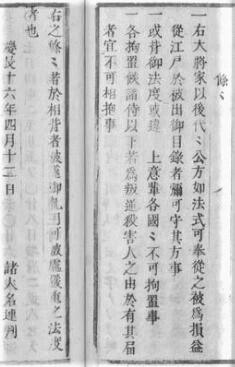 條〻
一右大將家以後代〻公方如法式可奉仰之被爲損益
從江戶於被出御目錄者彌可守其方事
一或背御法度或違　上意輩各國〻不可拘置事
一各拘置候諸侍以下若爲叛逆殺害人之由於有其届
者宜不可相拘事
右之條〻者於相背者被遂御糺明可被處嚴重之法度
者也
慶長十六年四月十二日　　諸大名連判